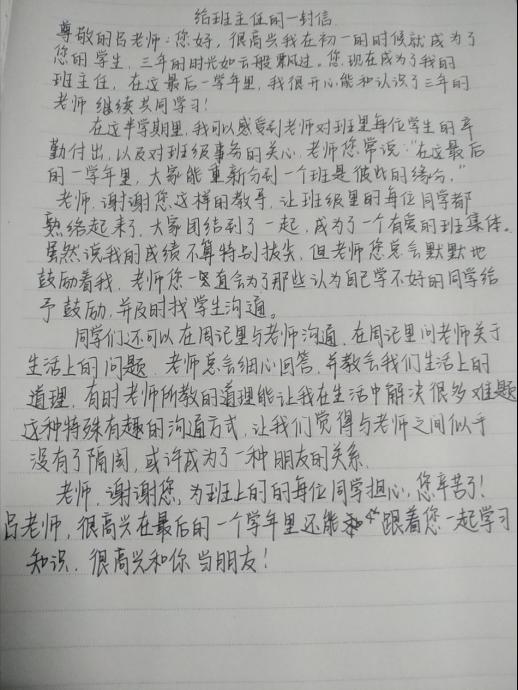 给班主任的一封信
尊敬的吕老师：您好，很高兴我在初一的时候就成为了
您的学生，三年的时光如云般飘过。您现在成为了我的
班主任，在这最后一学年里，我很开心能和认识了三年的
老师继续共同学习！
在这半学期里，我可以感受到老师对班里每位学生的辛
勤付出，以及对班级事务的关心，老师您常说：“在这最后
的一学年里，大家能重新分到一个班是彼此的缘分。”
老师，谢谢您，这样的教导，让班级里的每位同学都
熟络起来了，大家团结到了一起，成为了一个有爱的班集体。
虽然说我的成绩不算特别拔尖，但老师您总会默默地
鼓励着我，老师您一直会为了那些认为自己学不好的同学给
予鼓励，并及时找学生沟通。
同学们还可以在周记里与老师沟通，在周记里问老师关于
生活上的问题，老师总会细心回答，并教会我们生活上的
道理，有时老师所教的道理能让我在生活中解决很多难题。
这种特殊有趣的沟通方式，让我们觉得与老师之间似乎
没有了隔阂，或许成为了一种朋友的关系。
老师，谢谢您，为班上的的每位同学担心，您辛苦了！
吕老师，很高兴在最后的一个学年里还能跟着您一起学习
知识，很高兴和你当朋友！